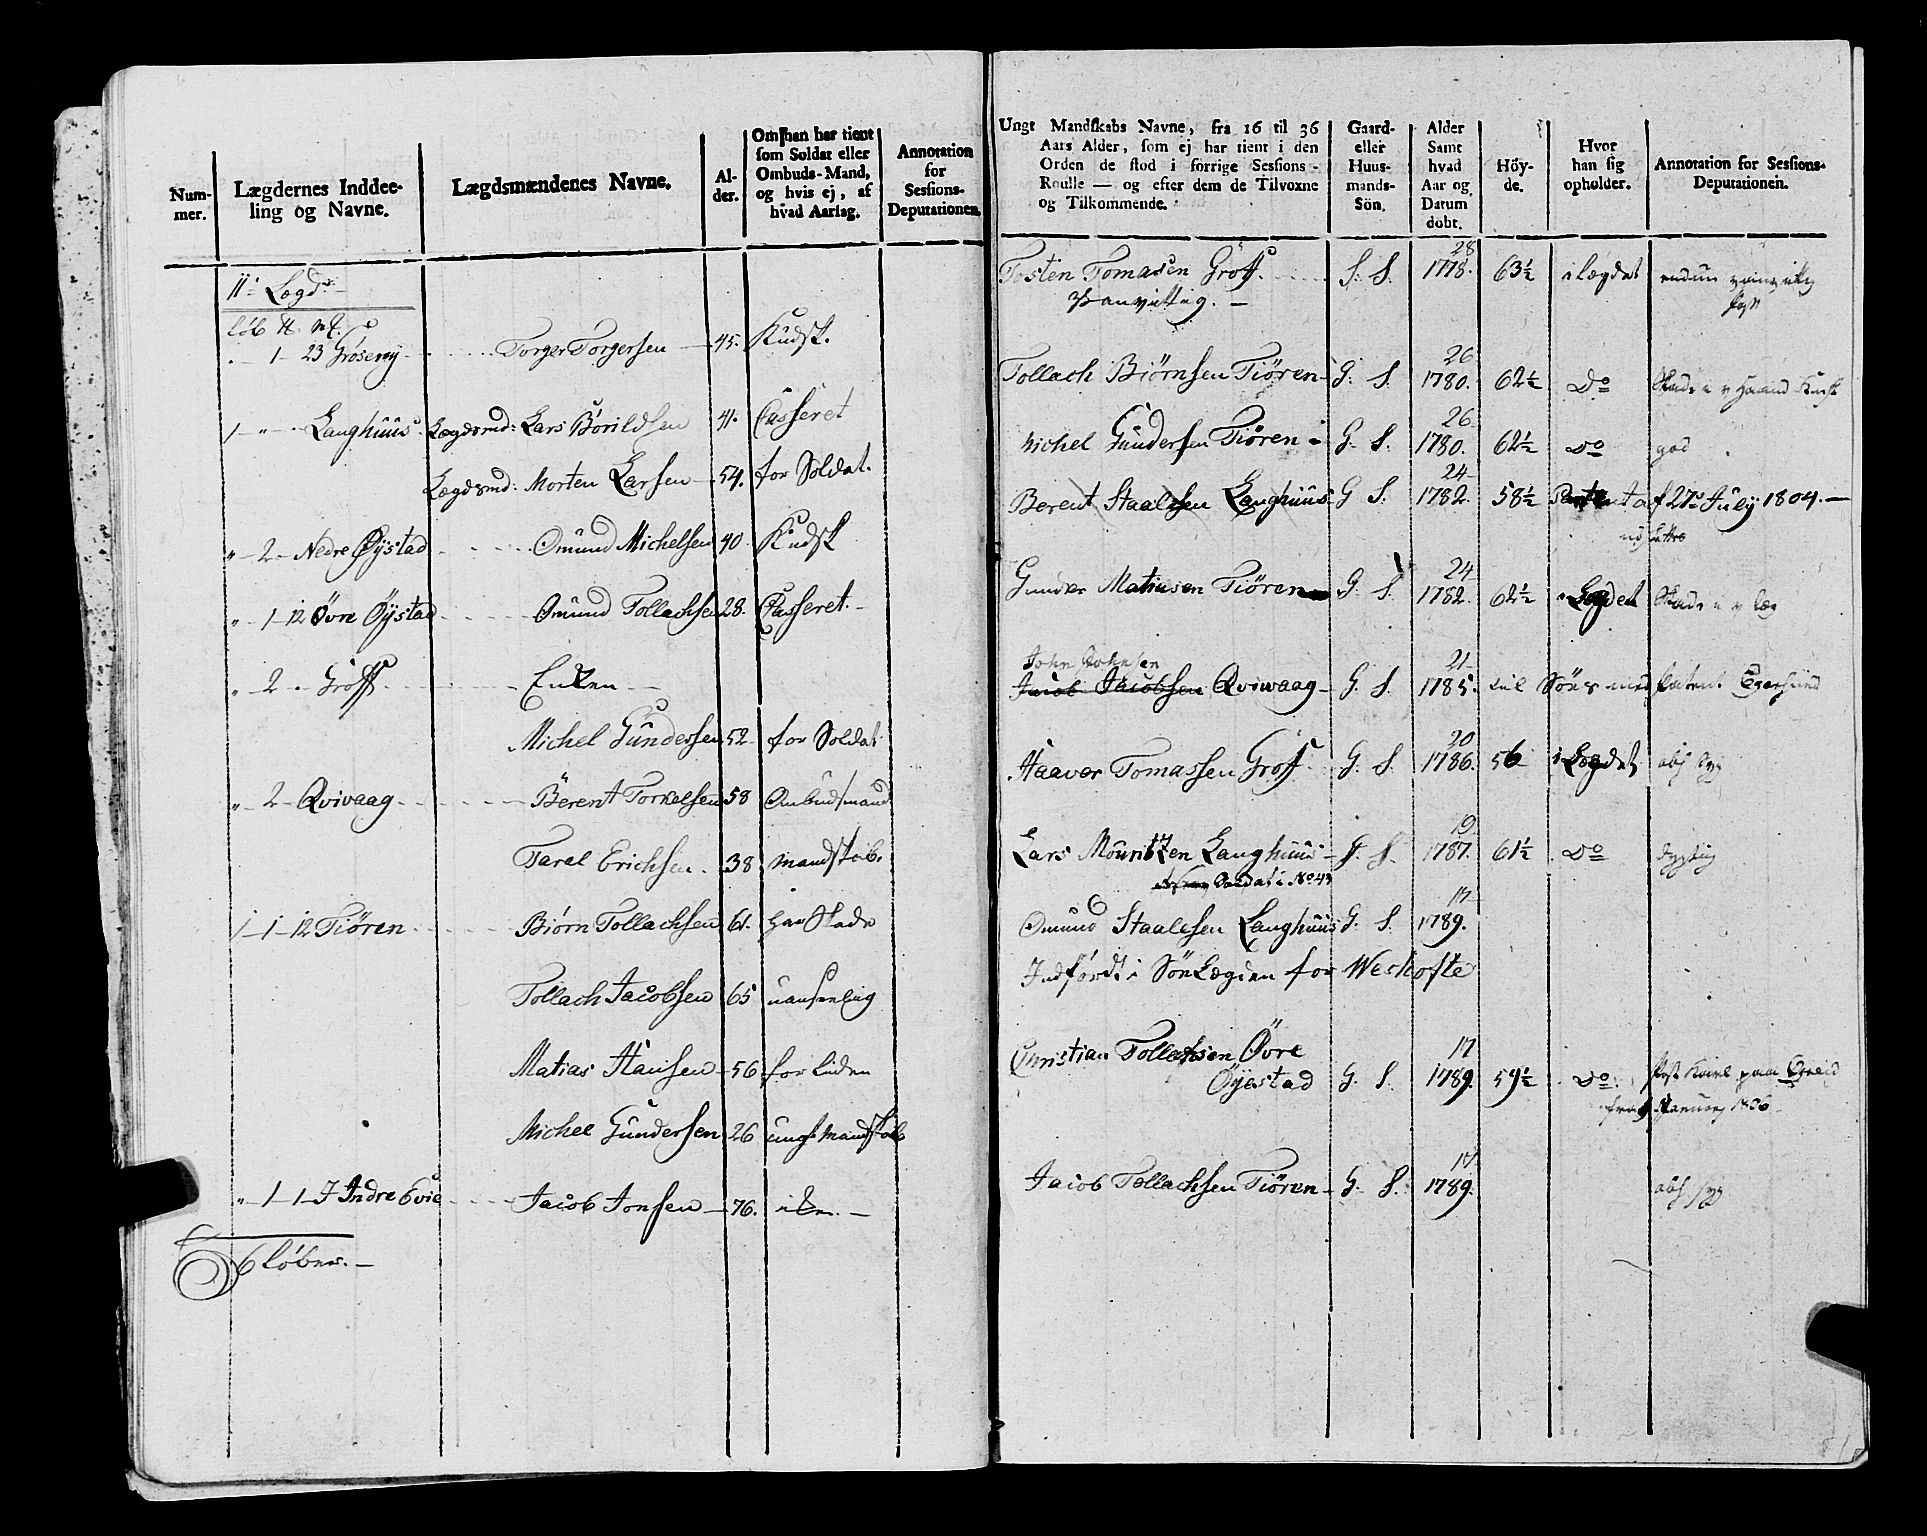 Num-
mer.
Lægdernes Inddee-
ling og Navne.
Lægdsmændenes Navne.
Al-
der.
Om han har tient
som Soldat eller
Ombuds-Mand,
og hvis ej, af
hvad Aarsag.
Annotation
for
Sessions-
Deputationen.
11te Lægd
löb H. M.
" 1 - 23 Grösemy Torger Torgersen 45. Kudsk.
1 - " - Langhuus Lægdsmd: Lars Börildsen 41. Casseret
Lægdsmd: Morten Larsen 54. for Soldat.
" - 2 - Nedre Öystad Omund Michelsen 40 Kudsk
" - 1 - 12 Övre Öystad Omund Tollachsen 28. Casseret.
" - 2 - Gröff Enken
Michel Gundersen 52 for Soldat
" - 2 - Qvivaag Berent Torkelsen 58 Ombudsmand
Taral Erichsen 38 mandskab.
1 - 1 - 12 Tiören Biörn Tollachsen 61. har Skade
Tollach Jacobsen 65 uanseelig
Matias Hansen 56 for liden
Michel Gundersen 26 ungt mandskab
" - 1 - 1 Indre Evie Jacob Jonsen 76.
6 löber.
Ungt Mandskabs Navne, fra 16 til 36
Aars Alder, som ej har tient i den
Orden de stod i forrige Sessions-
Roulle — og efter dem de Tilvoxne
og Tilkommende.
Gaard-
eller
Huus-
mands-
Sön.
Alder
Samt
hvad
Aar og
Datum
döbt.
Höy-
de.
Hvor
han sig
opholder.
Annotation for Sessions-
Deputationen.
28
Tosten Tomasen Gröff. S. S. 1778. 63½ i lægdet endnu
Vanvittig.
26
Tollach Biörnsen Tiören G. S. 1780. 62½ Do Skade i v Haand Kudsk
26
Michel Gundersen Tiören G. S. 1780. 62½ Do god
24
Berent Staalesen Langhuus G S. 1782. 58½ Patent af 27de July 1804.
24
Gunder Matiusen Tiören G. S. 1782. 62½ i Lægdet Skade i v læg
John Johnsen 21
Jacob Jacobsen Qvivaag G. S. 1785. Söes med Patent Egersund
20
Haaver Tomassen Gröff G. S. 1786. 56 i Lægdet
19
Lars Mouritzen Langhuus G. S. 1787. 61½ Do dygtig
Soldat i No 43
17
Omund Staalesen Langhuus G. S. 1789.
Indfördt i Söe Lægden for Weskofte
Christian Tollachsen Övre 17
Öyestad G. S. 1789. 59½ Do Post Karl paa
fra Januarj 1806
17
Jacob Tollachsen Tiören G. S. 1789.